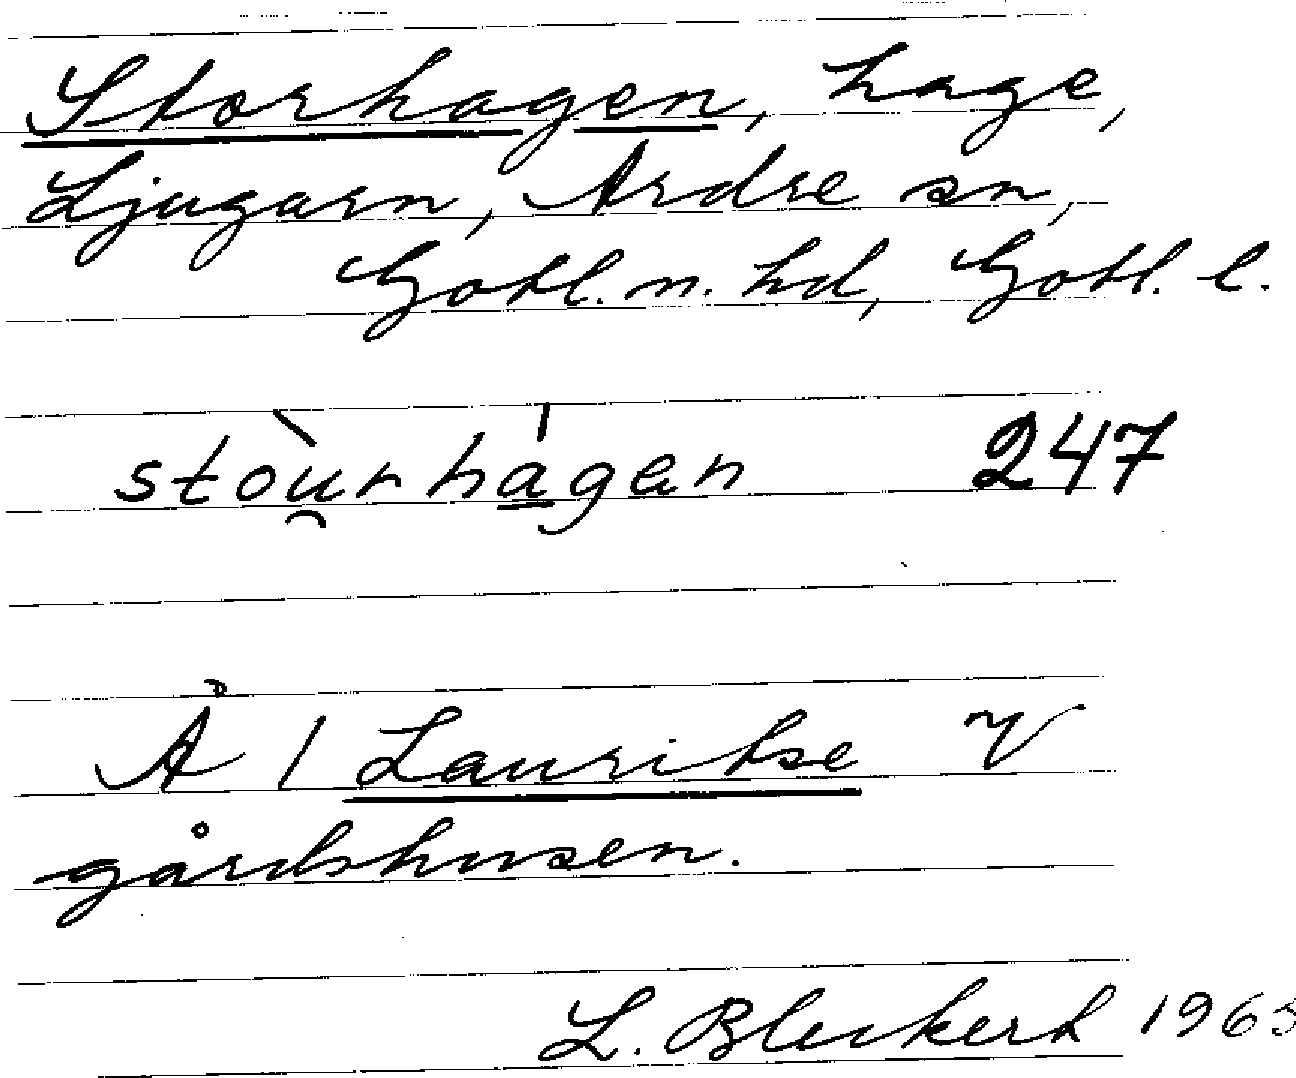 Storhagen, hage,
Ljugarn, Ardre sn,
Gotl. n. hd, Gotl. l.
stòu̯rhá̱gən 247
Å 1 Lauritse V
gårdshusen.
L. Bleckert 1963